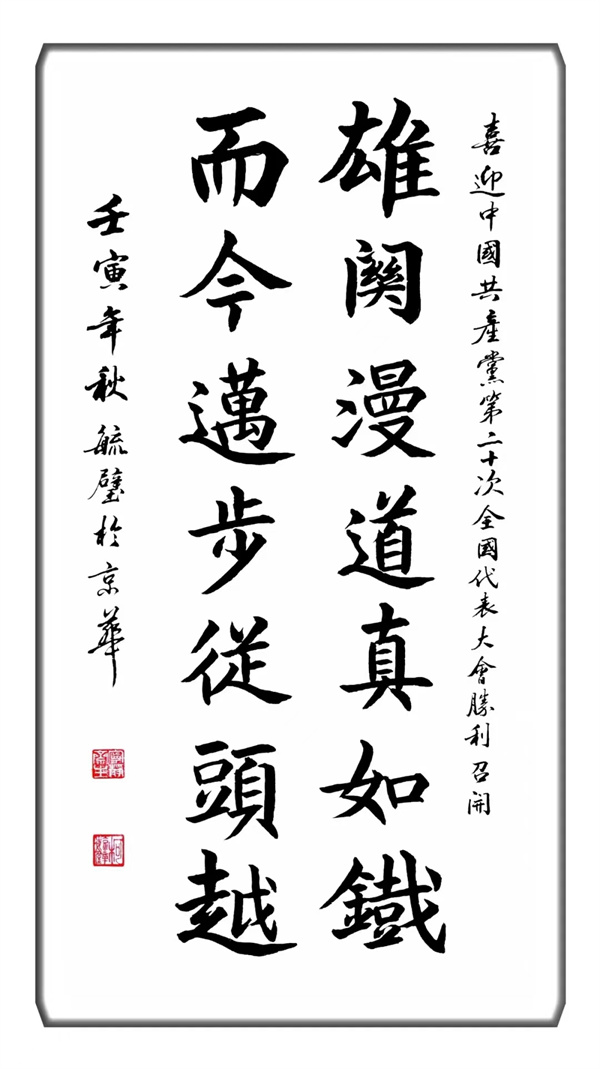 喜迎中國共產黨第二十次全國代表大會勝利召開
雄関漫道真如鐵
而今邁步從頭越
壬寅年秋毓璧於京華